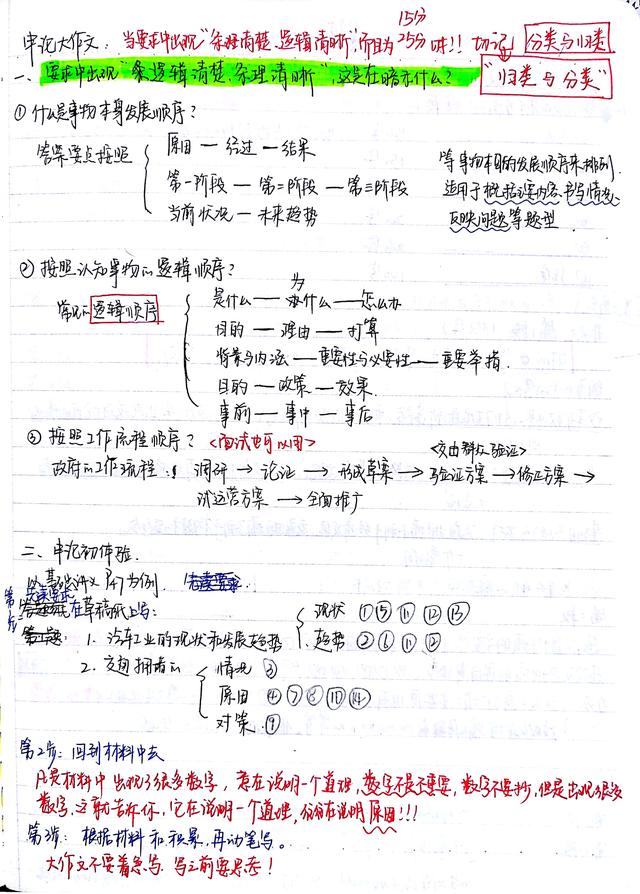 15分
申论大作文：当要求中出现"条理清楚、逻辑清晰"，而且为25分时！！切记 分类与归类
一、要求中出现"条逻辑清楚，条理清晰"，这是在暗示什么？ "归类与分类"
① 什么是事物本身发展顺序？
答案要点按照
原因 — 经过 — 结果
第一阶段 — 第二阶段 — 第三阶段
当前状况 — 未来趋势
等事物本身的发展顺序来排列
适用于概括主要内容、书写情况、
反映问题等题型
② 按照认知事物的逻辑顺序？
常见的逻辑顺序
为
是什么 — 办什么 — 怎么办
目的 — 理由 — 打算
背景与内涵 — 重要性与必要性 — 重要举措
目的 — 政策 — 效果
事前 — 事中 — 事后
③ 按照工作流程顺序？<面试也可以用>
<交由群众验证>
政府的工作流程：调研 → 论证 → 形成草案 → 验证方案 → 修正方案 →
试运营方案 → 全面推广
二、申论初体验.
以基础讲义 为例.
第1步：先读要求
在草稿纸上写：
1. 汽车工业的现状和发展趋势
现状 ① ⑤ ⑪ ⑫ ⑬
趋势 ② ⑥ ⑪ ⑫
2. 交通拥堵的
情况 ③
原因 ④ ⑦ ⑧ ⑩ ⑭
对策 ⑨
第2步：回到材料中去
凡是材料中出现了很多数字，意在说明一个道理，数字不是不重要，数字不要抄，但是出现很多
数字，这就告诉你，它在说明一个道理，往往在说明原因！！！
第3步：根据材料和积累，再动笔写。
大作文不要着急写，写之前要思考！